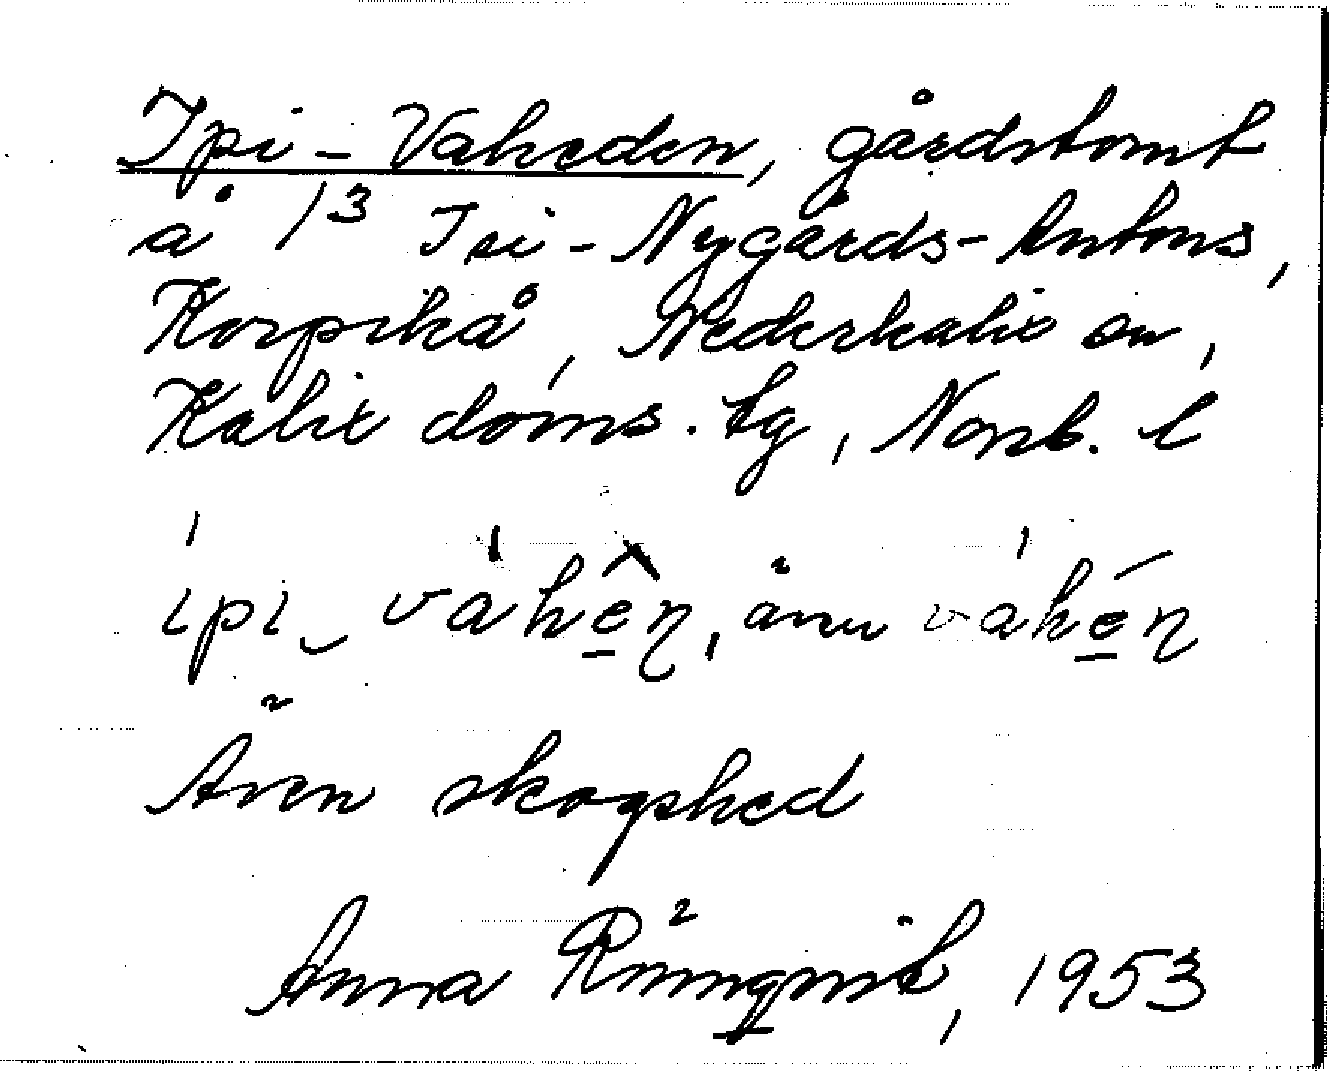 Ipi-Vaheden, gårdstomt
å 13 Isi-Nygårds-Antons,
Korpikå, Nederkalix sn,
Kalix doms. tg, Norrb. l
ipi-vàhên, äm vàhén
Även skogshed
Anna Rönnqvist, 1953